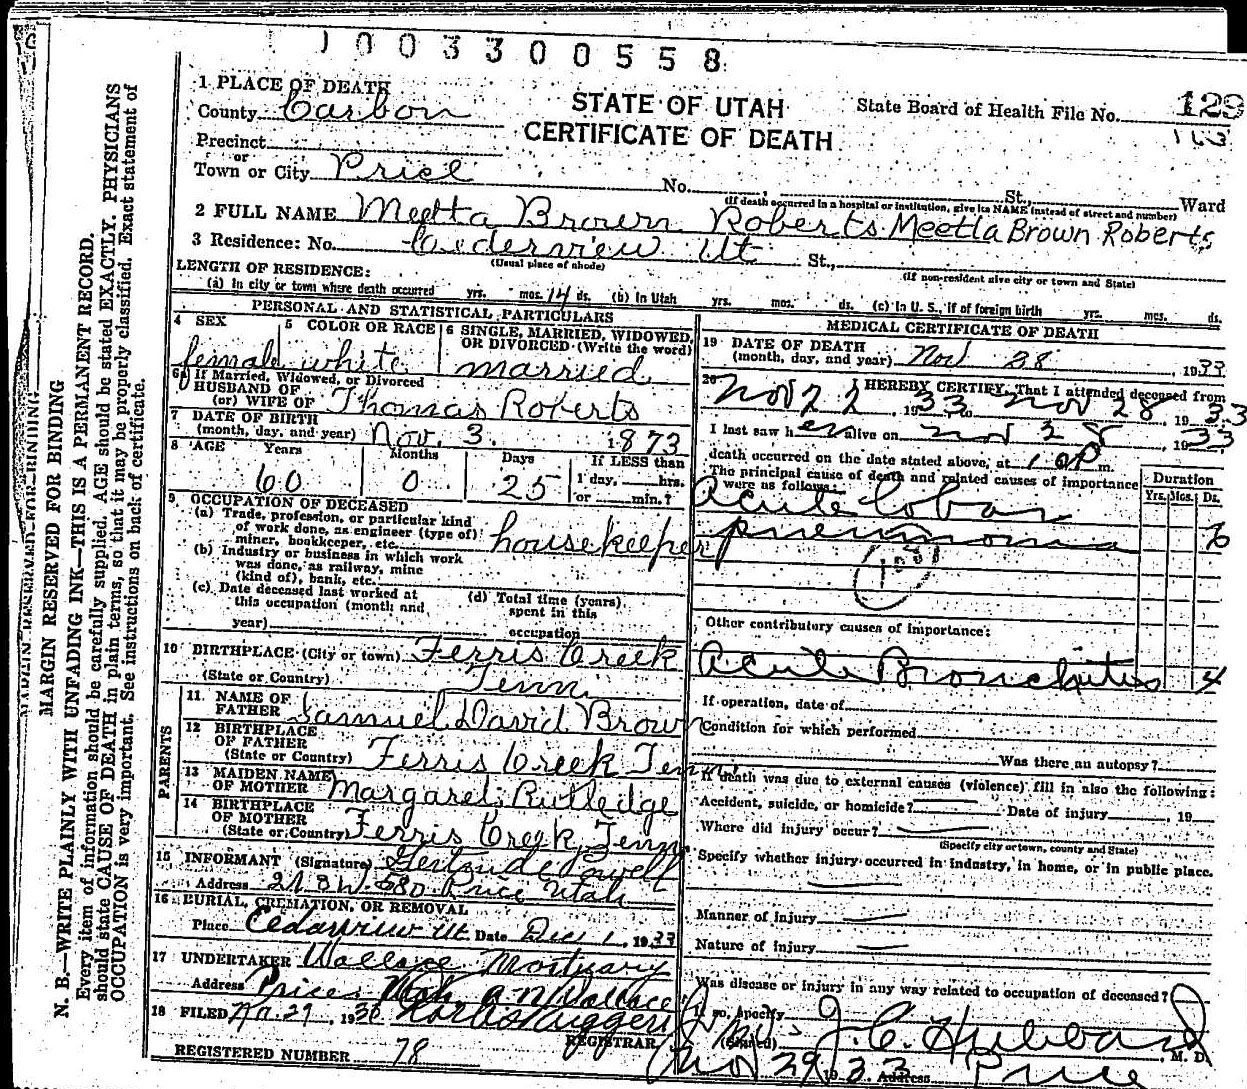 1003300558
1 PLACE OF DEATH
County Carbon
STATE OF UTAH
CERTIFICATE OF DEATH
State Board of Health File No. 129
Precinct
or
Town or City Price No. , St., Ward
(If death occurred in a hospital or institution, give its NAME instead of street and number)
2 FULL NAME Meetta Brown Roberts Meetta Brown Roberts
3 Residence: No. Cederview Ut St.,
(Usual place of abode) (If non-resident give city or town and State)
LENGTH OF RESIDENCE:
(a) In city or town where death occurred yrs. mos. 14 ds. (b) In Utah yrs. mos. ds. (c) In U. S., if of foreign birth yrs. mos. ds.
PERSONAL AND STATISTICAL PARTICULARS
4 SEX 5 COLOR OR RACE 6 SINGLE, MARRIED, WIDOWED, OR DIVORCED (Write the word)
female white married
6a If Married, Widowed, or Divorced
HUSBAND OF
(or) WIFE OF Thomas Roberts
7 DATE OF BIRTH
(month, day, and year) Nov. 3. 1873
8 AGE Years Months Days If LESS than
60 0 25 1 day, hrs.
or min.?
9 OCCUPATION OF DECEASED
(a) Trade, profession, or particular kind
of work done, as engineer (type of)
miner, bookkeeper, etc. housekeeper
(b) Industry or business in which work
was done, as railway, mine
(kind of), bank, etc.
(c) Date deceased last worked at
this occupation (month and
year)
(d) Total time (years)
spent in this
occupation
10 BIRTHPLACE (City or town) Ferris Creek
(State or Country) Tenn
PARENTS
11 NAME OF
FATHER Samuel David Brown
12 BIRTHPLACE
OF FATHER
(State or Country) Ferris Creek Tenn
13 MAIDEN NAME
OF MOTHER Margaret Rutledge
14 BIRTHPLACE
OF MOTHER
(State or Country) Ferris Creek, Tenn
15 INFORMANT (Signature) Gertrude
Address Price Utah
16 BURIAL, CREMATION, OR REMOVAL
Place Cedarview Ut. Date Dec 1, 1933
17 UNDERTAKER Wallace Mortuary
Address Price, Utah Wallace
18 FILED 29, 19
REGISTRAR
REGISTERED NUMBER 78
MEDICAL CERTIFICATE OF DEATH
19 DATE OF DEATH
(month, day, and year) Nov 28, 1933
20 I HEREBY CERTIFY, That I attended deceased from
Nov 22, 1933 to Nov 28, 1933
I last saw her alive on Nov 28, 1933
death occurred on the date stated above, at m.
The principal cause of death and related causes of importance
were as follows:
Duration
Yrs. Mos. Ds.
Acute lobar
pneumonia 6
Other contributory causes of importance:
Acute Bronchitis 4
If operation, date of
Condition for which performed
Was there an autopsy?
If death was due to external causes (violence) fill in also the following:
Accident, suicide, or homicide? Date of injury , 19
Where did injury occur?
(Specify city or town, county and State)
Specify whether injury occurred in industry, in home, or in public place.
Manner of injury
Nature of injury
Was disease or injury in any way related to occupation of deceased?
If so, specify
(Signed) J. C. Hubbard, M. D.
Nov 29, 1933 Address Price
MARGIN RESERVED FOR BINDING
N. B.—WRITE PLAINLY WITH UNFADING INK—THIS IS A PERMANENT RECORD.
Every item of information should be carefully supplied. AGE should be stated EXACTLY. PHYSICIANS
should state CAUSE OF DEATH in plain terms, so that it may be properly classified. Exact statement of
OCCUPATION is very important. See instructions on back of certificate.